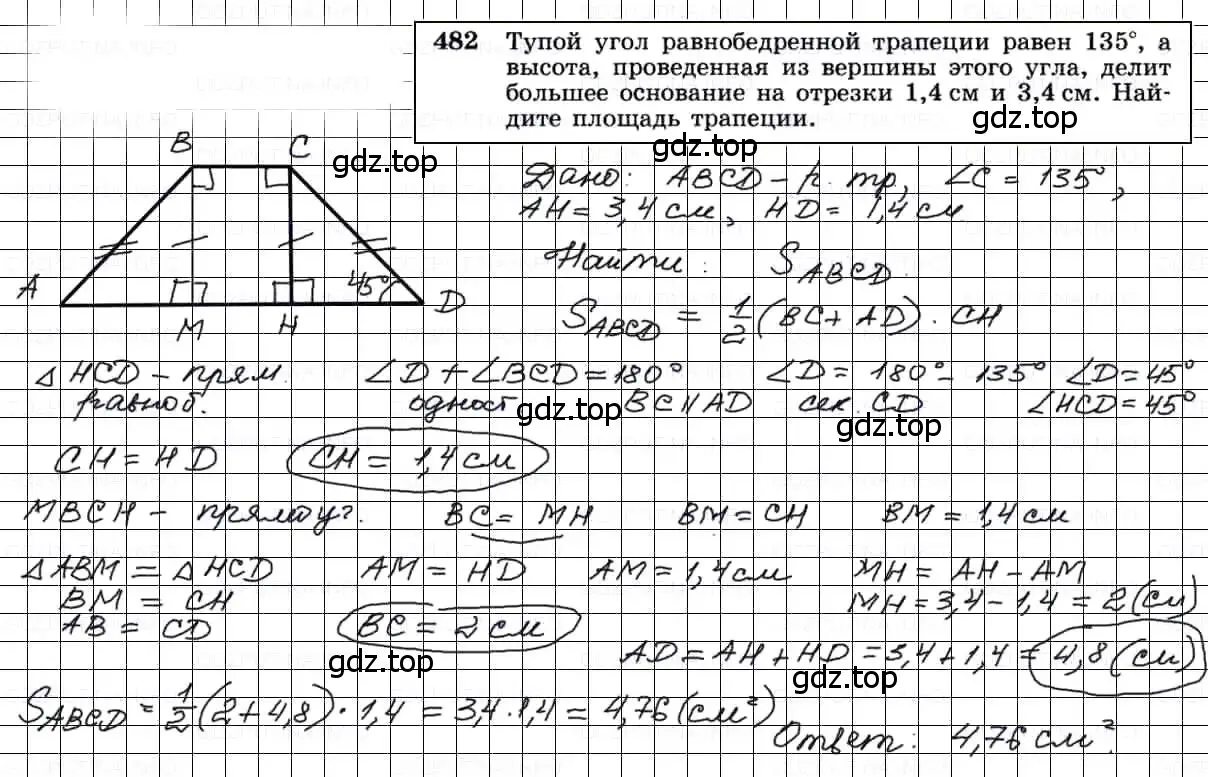 482 Тупой угол равнобедренной трапеции равен 135°, а
высота, проведенная из вершины этого угла, делит
большее основание на отрезки 1,4 см и 3,4 см. Най-
дите площадь трапеции.
gdz.top gdz.top gdz.top
B C
A M H D
45°
Дано: ABCD – р. тр, ∠C = 135°,
AH = 3,4 см, HD = 1,4 см
Найти: S_ABCD.
S_ABCD = 1/2 (BC + AD) · CH
△HCD – прям. ∠D + ∠BCD = 180° ∠D = 180° – 135° ∠D = 45°
равноб. одност BC ∥ AD сек. CD ∠HCD = 45°
gdz.top gdz.top
CH = HD CH = 1,4 см
MBCH – прямоуг. BC = MH BM = CH BM = 1,4 см
△ABM = △HCD AM = HD AM = 1,4 см MH = AH – AM
BM = CH MH = 3,4 – 1,4 = 2 (см)
AB = CD BC = 2 см
AD = AH + HD = 3,4 + 1,4 = 4,8 (см)
gdz.top gdz.top
S_ABCD = 1/2 (2 + 4,8) · 1,4 = 3,4 · 1,4 = 4,76 (см²)
Ответ: 4,76 см².